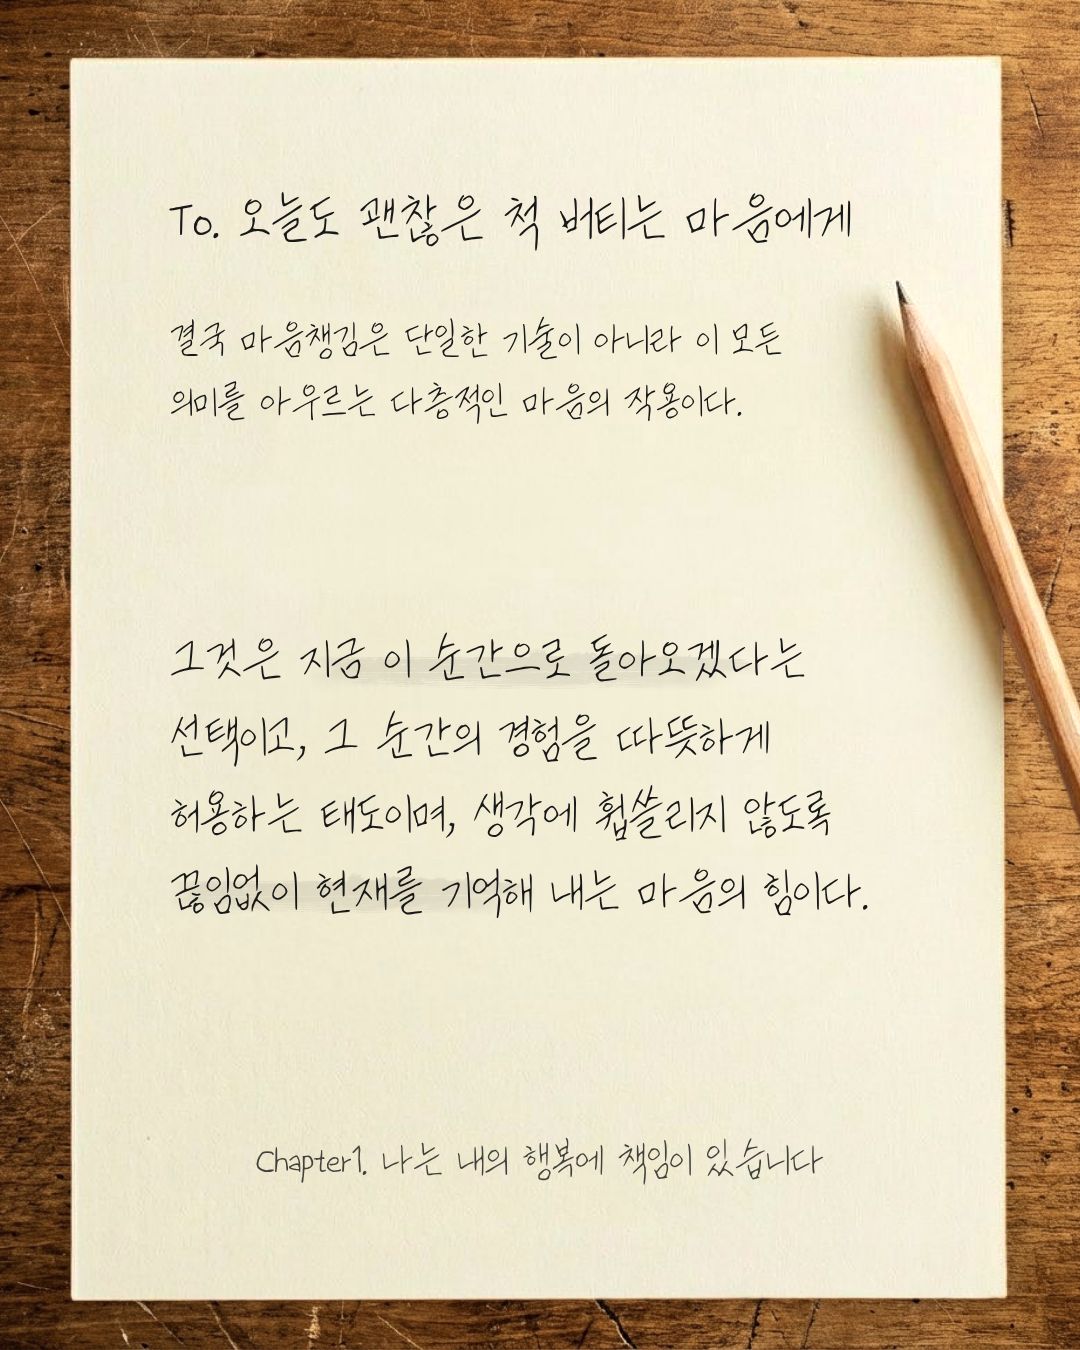 To. 오늘도 괜찮은 척 버티는 마음에게
결국 마음챙김은 단일한 기술이 아니라 이 모든
의미를 아우르는 다층적인 마음의 작용이다.
그것은 지금 이 순간으로 돌아오겠다는
선택이고, 그 순간의 경험을 따뜻하게
허용하는 태도이며, 생각에 휩쓸리지 않도록
끊임없이 현재를 기억해 내는 마음의 힘이다.
Chapter1. 나는 내의 행복에 책임이 있습니다